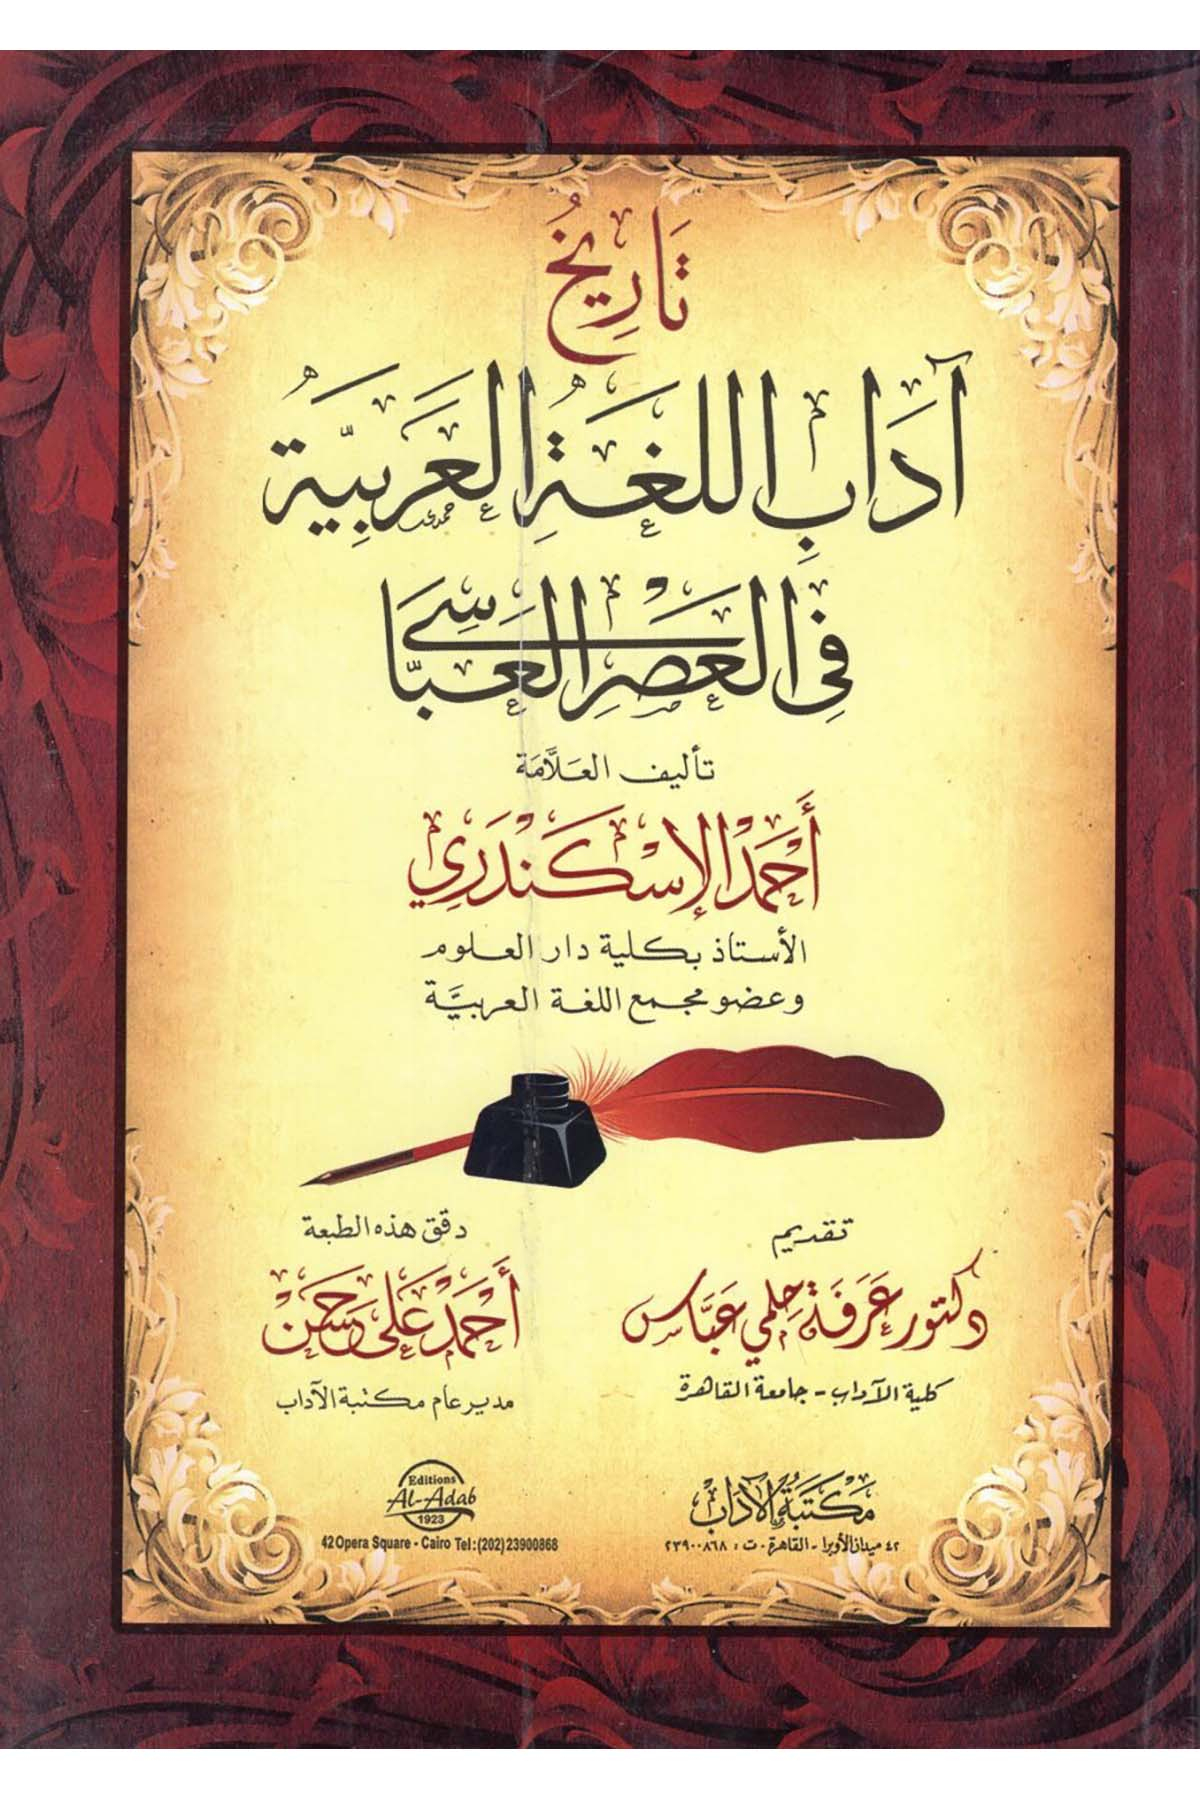 تَارِيخُ
آدَابِ اللغَةِ العَرَبِيَّةِ
فِي العَصْرِ العَبَّاسِي
تأليف العَلاَّمَة
أَحْمَدْ الإِسْكَنْدَرِي
الأستاذ بكلية دار العلوم
وعضو مجمع اللغة العربيَّة
تقديم
دكتور عَرَفَة حِلمي عَبَّاس
كلية الآداب - جامعة القاهرة
دقق هذه الطبعة
أَحْمَدْ عَلى حَسَنْ
مدير عام مكتبة الآداب
مكتبَةُ الآدَابْ
٤٢ ميدان الأوبرا - القاهرة - ت: ٢٣٩٠٠٨٦٨
Editions
Al-Adab
1923
42 Opera Square - Cairo Tel: (202) 23900868